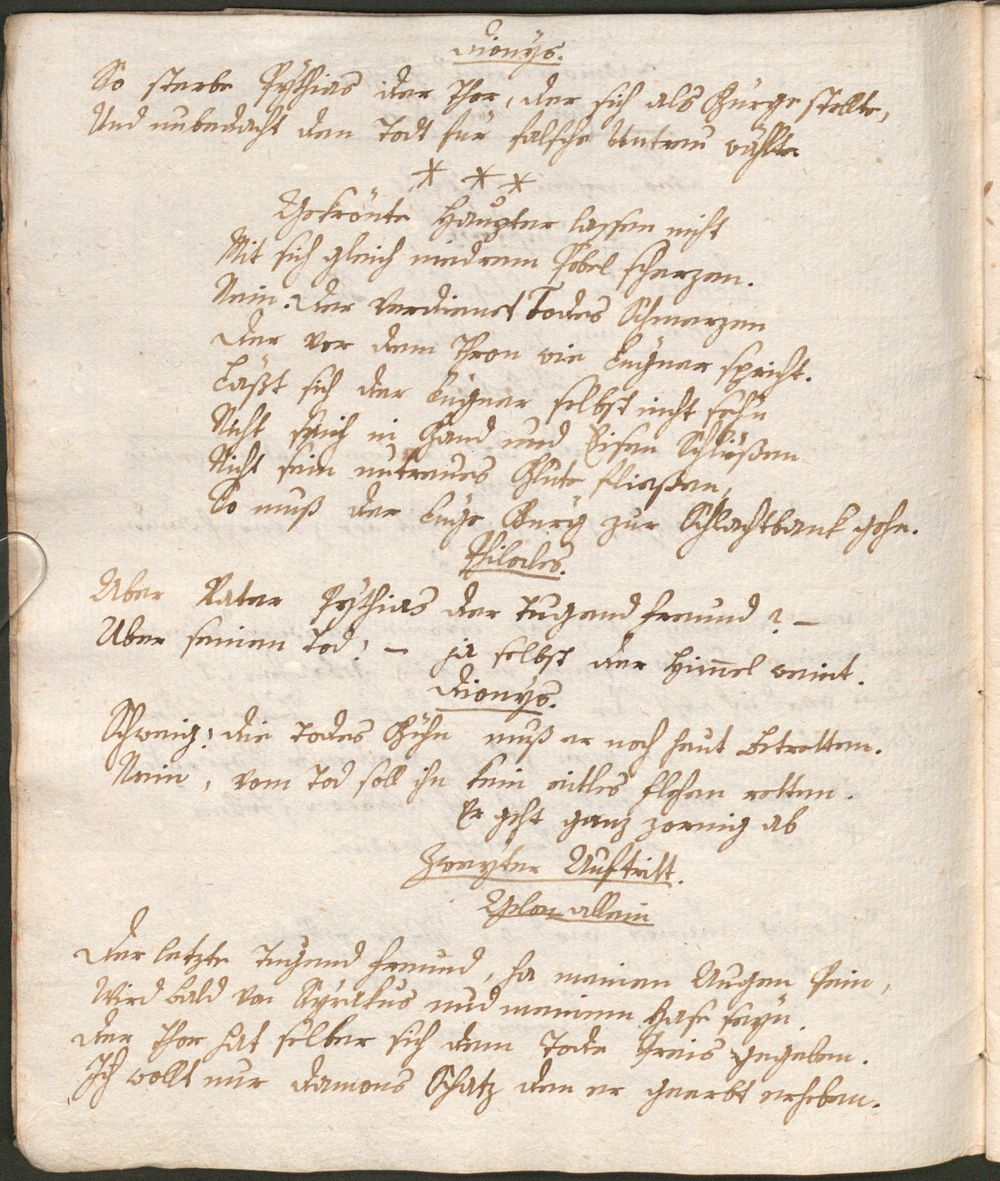 Dionys.
So sterbe Pythias der Thor, der sich als Bürge stellte,
Und unbedacht den Todt für falsche Untreu wählte
* * *
Gekrönte Häupter lassen nicht
Mit sich gleich niedrem Pöbel scherzen.
Nein. Der verdienet Todes Schmerzen
Der vor dem Thron wie Lügner spricht.
Läßt sich der Lügner selbst nicht sehn
Nicht sich in Band und Eisen Schlüßen
Nicht sein untreues Blute fließen,
So muß der Lüge Bürg zur Schlachtbank gehn.
Philocles.
Aber Vater Pythias der Tugend freund? –
Uber seinen Tod; – ja selbst der Himmel weint.
Dionys.
Schweig; die Todes Bühn muß er noch heut betretten.
Nein, vom Tod soll ihn kein eitles flehen retten.
Er geht ganz zornig ab
Zweyter Auftritt.
allein
Der letzte Tugend freund, ha meinen Augen Pein,
Wird bald von Syrakus und meinem Hase seyn.
Der Thor hat selber sich dem Tode Preis gegeben.
Ich wollt nur Damons Schatz den er geerbt erheben.